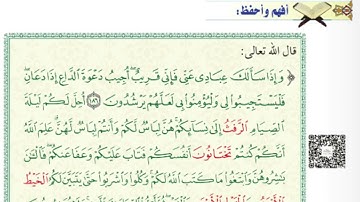 أفهم وأحفظ:
قال الله تعالى:
﴿ وَإِذَا سَأَلَكَ عِبَادِى عَنِّى فَإِنِّى قَرِيبٌ أُجِيبُ دَعْوَةَ ٱلدَّاعِ إِذَا دَعَانِ
فَلْيَسْتَجِيبُوا۟ لِى وَلْيُؤْمِنُوا۟ بِى لَعَلَّهُمْ يَرْشُدُونَ ١٨٦ أُحِلَّ لَكُمْ لَيْلَةَ
ٱلصِّيَامِ ٱلرَّفَثُ إِلَىٰ نِسَآئِكُمْ هُنَّ لِبَاسٌ لَّكُمْ وَأَنتُمْ لِبَاسٌ لَّهُنَّ عَلِمَ ٱللَّهُ
أَنَّكُمْ كُنتُمْ تَخْتَانُونَ أَنفُسَكُمْ فَتَابَ عَلَيْكُمْ وَعَفَا عَنكُمْ فَٱلْـَٰٔنَ
بَـٰشِرُوهُنَّ وَٱبْتَغُوا۟ مَا كَتَبَ ٱللَّهُ لَكُمْ وَكُلُوا۟ وَٱشْرَبُوا۟ حَتَّىٰ يَتَبَيَّنَ لَكُمُ ٱلْخَيْطُ